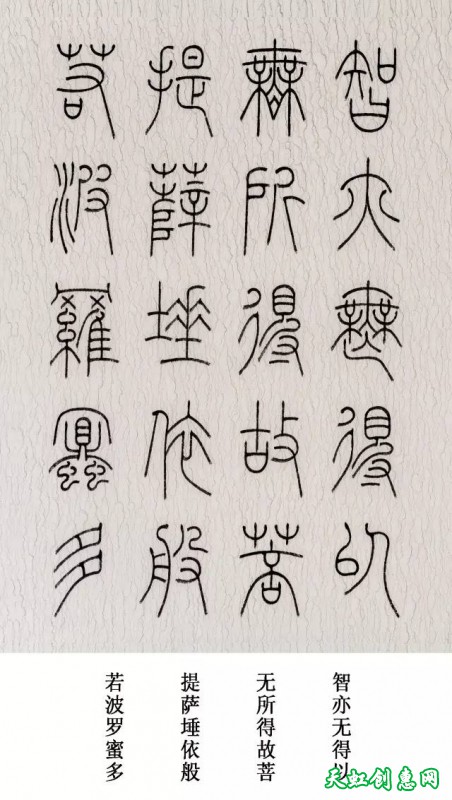 智亦無得㠯
無所得故菩
提薩埵依般
若波羅蜜多
智亦无得以
无所得故菩
提萨埵依般
若波罗蜜多
天虹创惠网